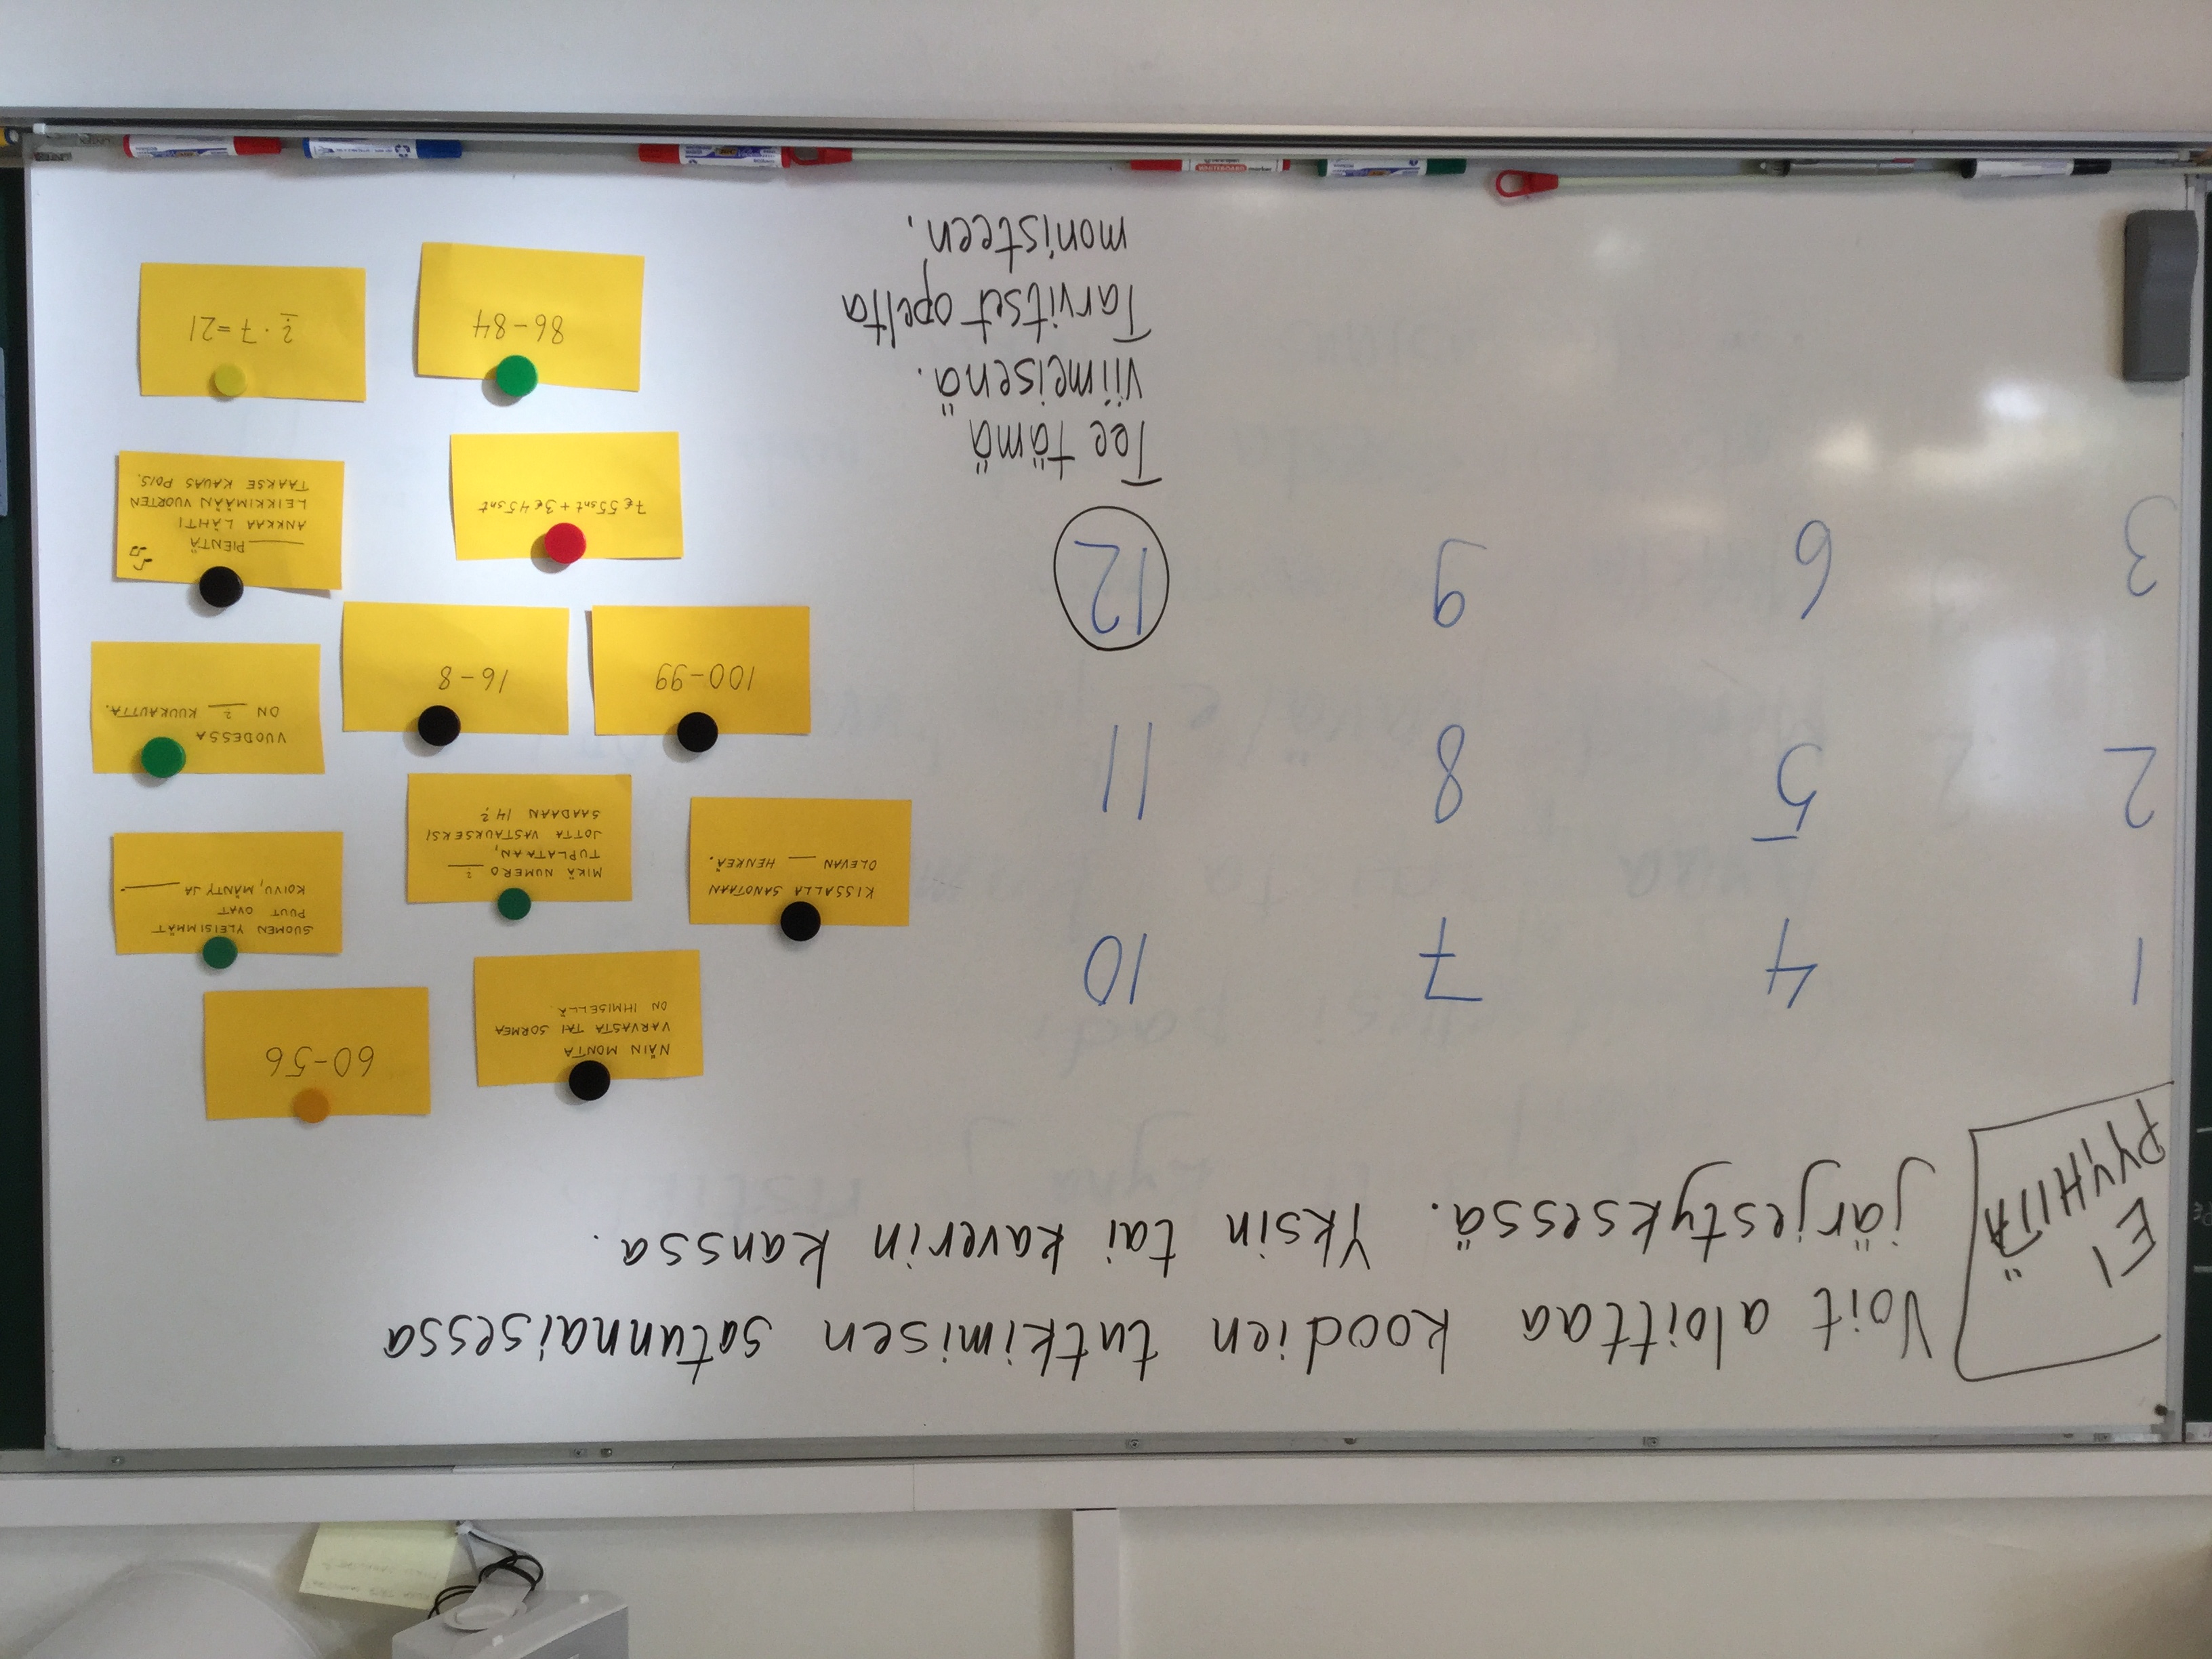 EI
PYYHITÄ
Voit aloittaa koodien tutkimisen satunnaisessa
järjestyksessä. Yksin tai kaverin kanssa.
1
2
3
4
5
6
7
8
9
10
11
12
Tee tämä
viimeisenä.
Tarvitset opelta
monisteen.
NÄIN MONTA
VARVASTA TAI SORMEA
ON IHMISELLÄ.
60-56
KISSALLA SANOTAAN
OLEVAN ___ HENKEÄ.
MIKÄ NUMERO ?
TUPLATAAN,
JOTTA VASTAUKSEKSI
SAADAAN 14?
SUOMEN YLEISIMMÄT
PUUT OVAT
KOIVU, MÄNTY JA ___
100-99
16-8
VUODESSA
ON ? KUUKAUTTA.
7€ 55snt + 3€ 45snt
___ PIENTÄ
ANKKAA LÄHTI
LEIKKIMÄÄN VUORTEN
TAAKSE KAUAS POIS.
86-84
? · 7 = 21